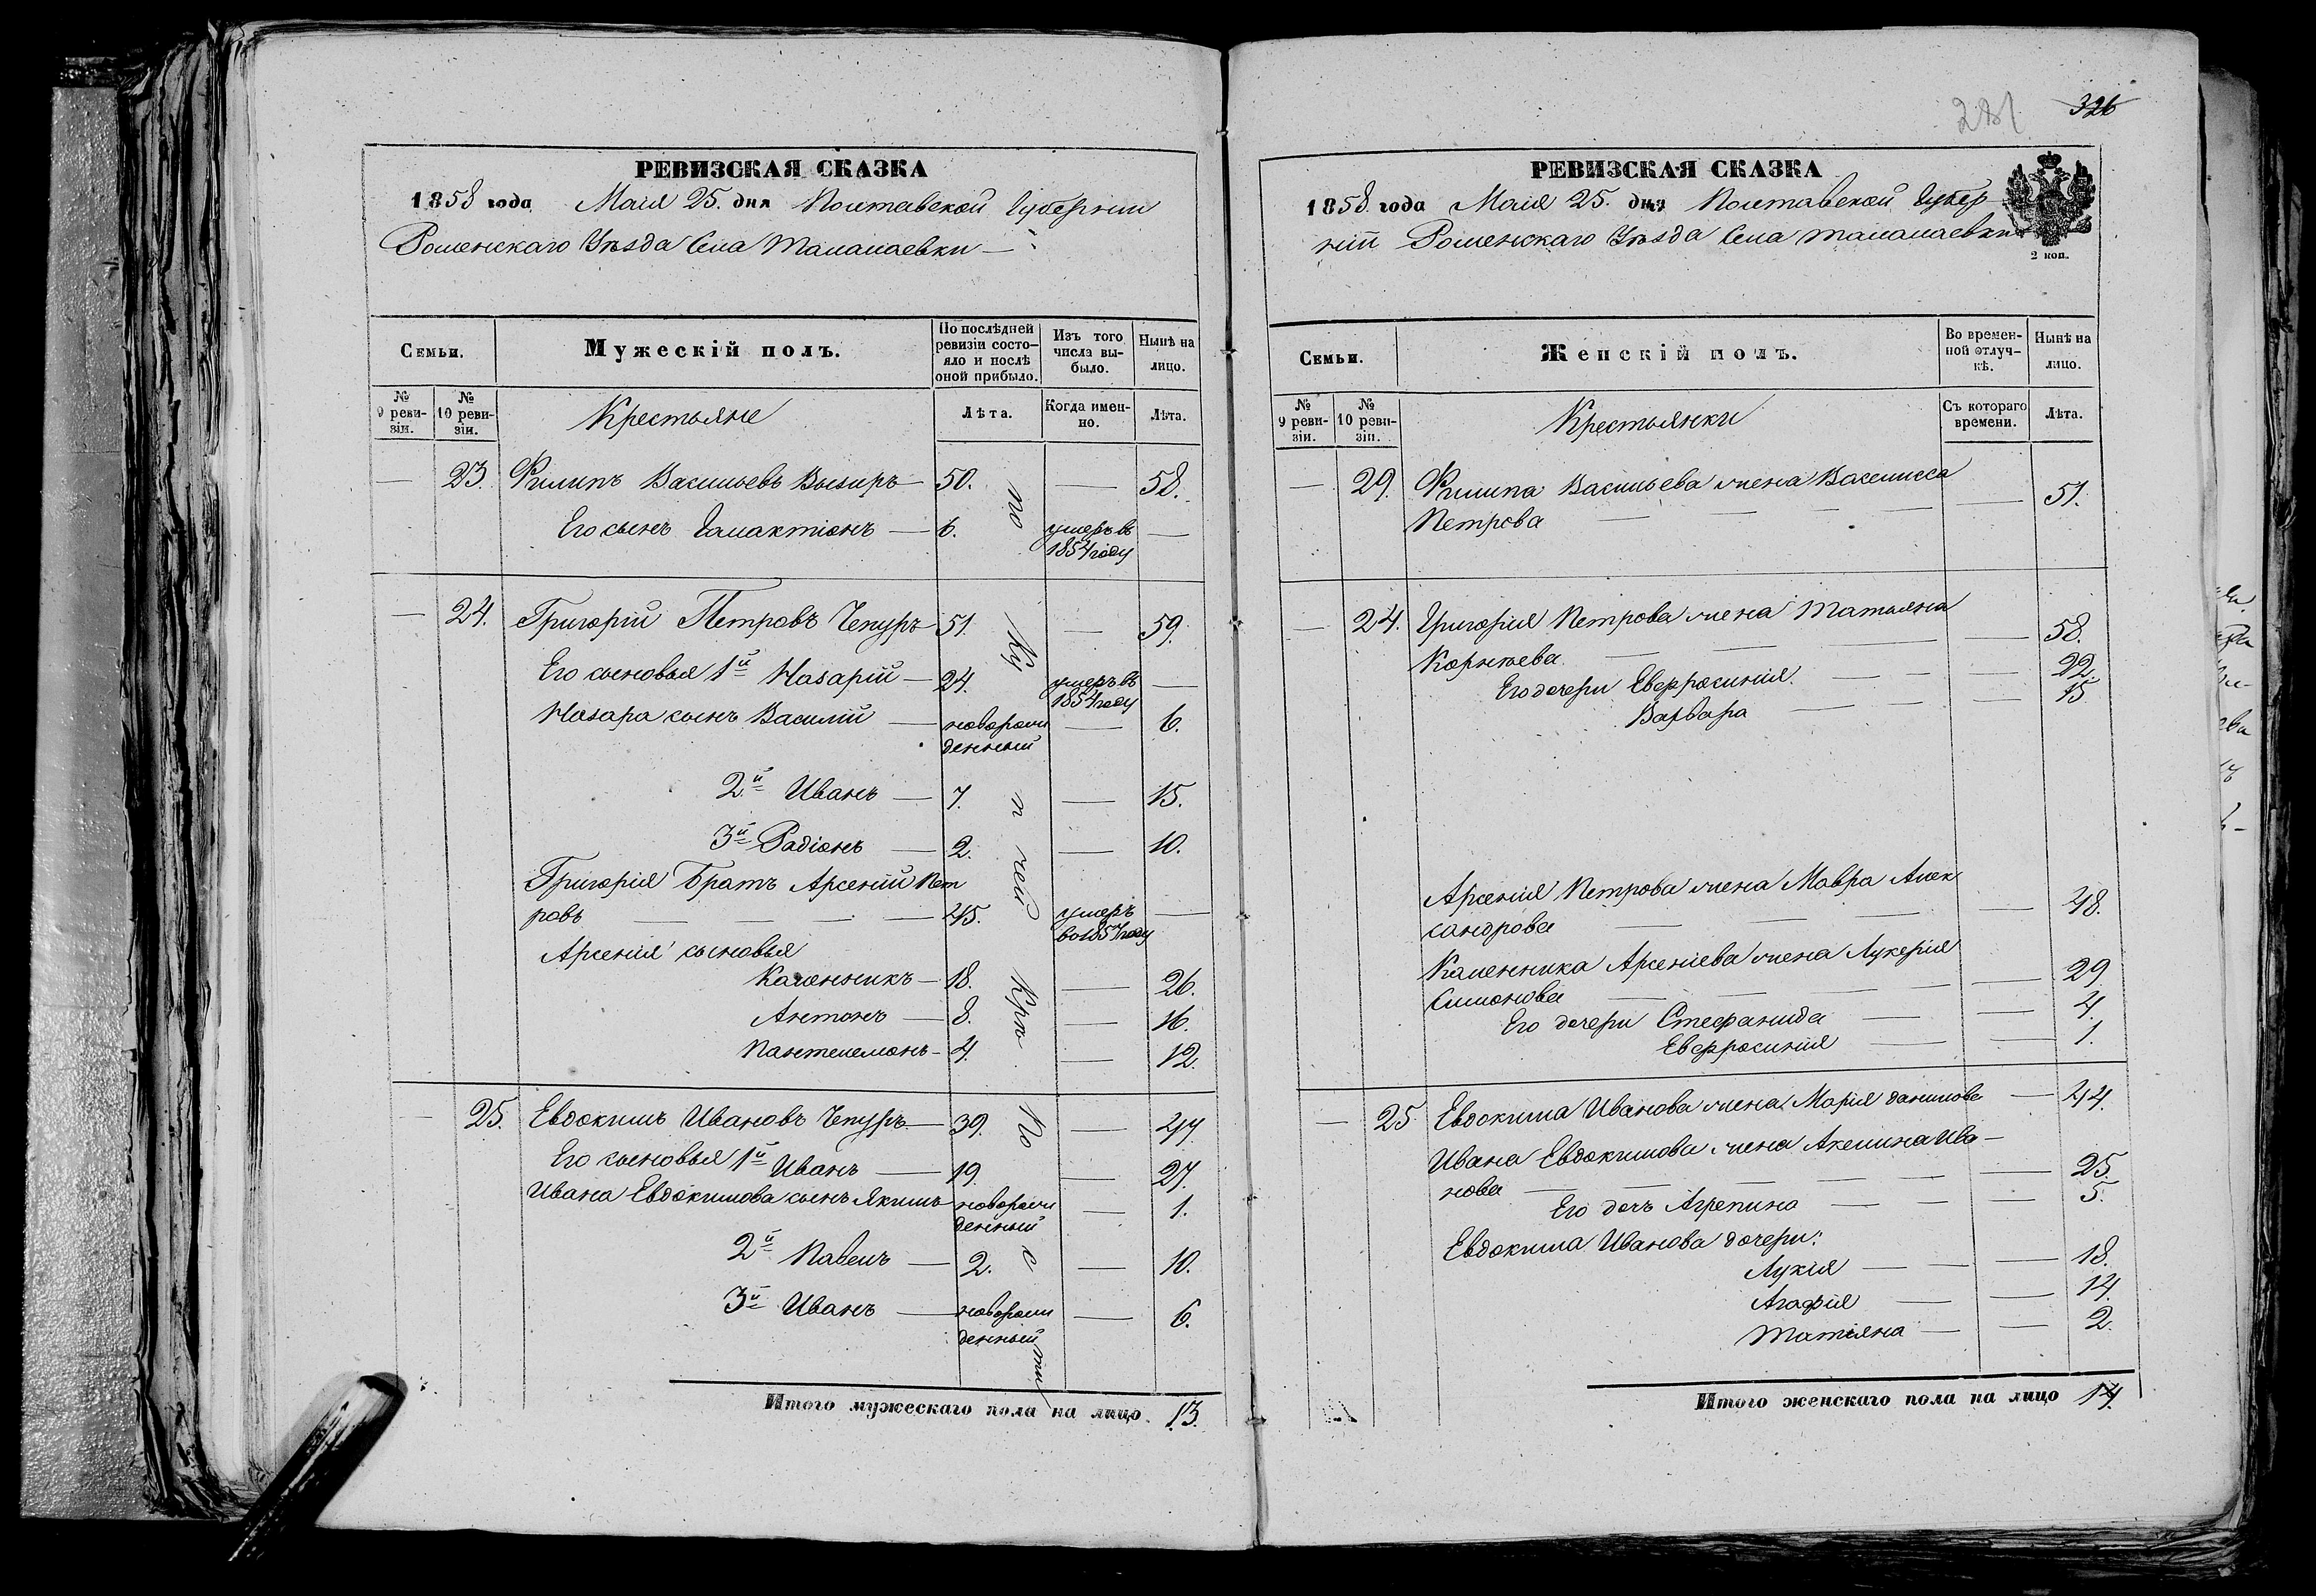 РЕВИЗСКАЯ СКАЗКА
1858 года Маія 25. дня Полтавской Губерніи
Роменскаго Уѣзда Села Талалаевки
Семьи.
Мужескій полъ.
По послѣдней ревизіи состояло и послѣ оной прибыло.
Изъ того числа выбыло.
Нынѣ на лицо.
№ 9 ревизіи.
№ 10 ревизіи.
Крестьяне
Лѣта.
Когда именно.
Лѣта.
— 23. Филипъ Васильевъ Высиръ — 50. — 58.
Его сынъ Галактіонъ — 6. умеръ въ 1854 году —
— 24. Григорій Петровъ Чепуръ 51. — 59.
Его сыновья 1й Назарій — 24. умеръ въ 1854 году —
Назара сынъ Василій — новорожденный — 6.
2й Иванъ — 7. — 15.
3й Радіонъ — 2. — 10.
Григорія братъ Арсеній Пет
ровъ — 45. умеръ во 1857 году —
Арсенія сыновья
Каленникъ — 18. — 26.
Антонъ — 8. — 16.
Пантелемонъ — 4. — 12.
— 25. Евдокимъ Ивановъ Чепуръ — 39. — 47.
Его сыновья 1й Иванъ — 19. — 27.
Ивана Евдокимова сынъ Якимъ новорожденный — 1.
2й Павелъ — 2. — 10.
3й Иванъ — новорожденный — 6.
Итого мужескаго пола на лицо. 13.
281 326
РЕВИЗСКАЯ СКАЗКА
1858 года Маія 25. дня Полтавской Губер
ніи Роменскаго Уѣзда Села Талалаевки
2 коп.
Семьи.
Женскій полъ.
Во временной отлучкѣ.
Нынѣ на лицо.
№ 9 ревизіи.
№ 10 ревизіи.
Крестьянки
Съ котораго времени.
Лѣта.
— 29. Филипа Васильева жена Василисса
Петрова — 51.
— 24. Григорія Петрова жена Татьяна
Корнѣева — 58.
Его дочери Евфросинія — 22.
Варвара — 15.
Арсенія Петрова жена Мавра Алек
сандрова — 48.
Каленника Арсеніева жена Лукерія
Симонова — 29
Его дочери Стефанида — 4.
Евфросинія — 1.
— 25 Евдокима Иванова жена Марія Данилова — 44.
Ивана Евдокимова жена Акелина Ива—
нова — 25.
Его дочь Агрепина — 5.
Евдокима Иванова дочери:
Лукія — 18.
Агафія — 14.
Татіяна — 2.
Итого женскаго пола на лицо 14.